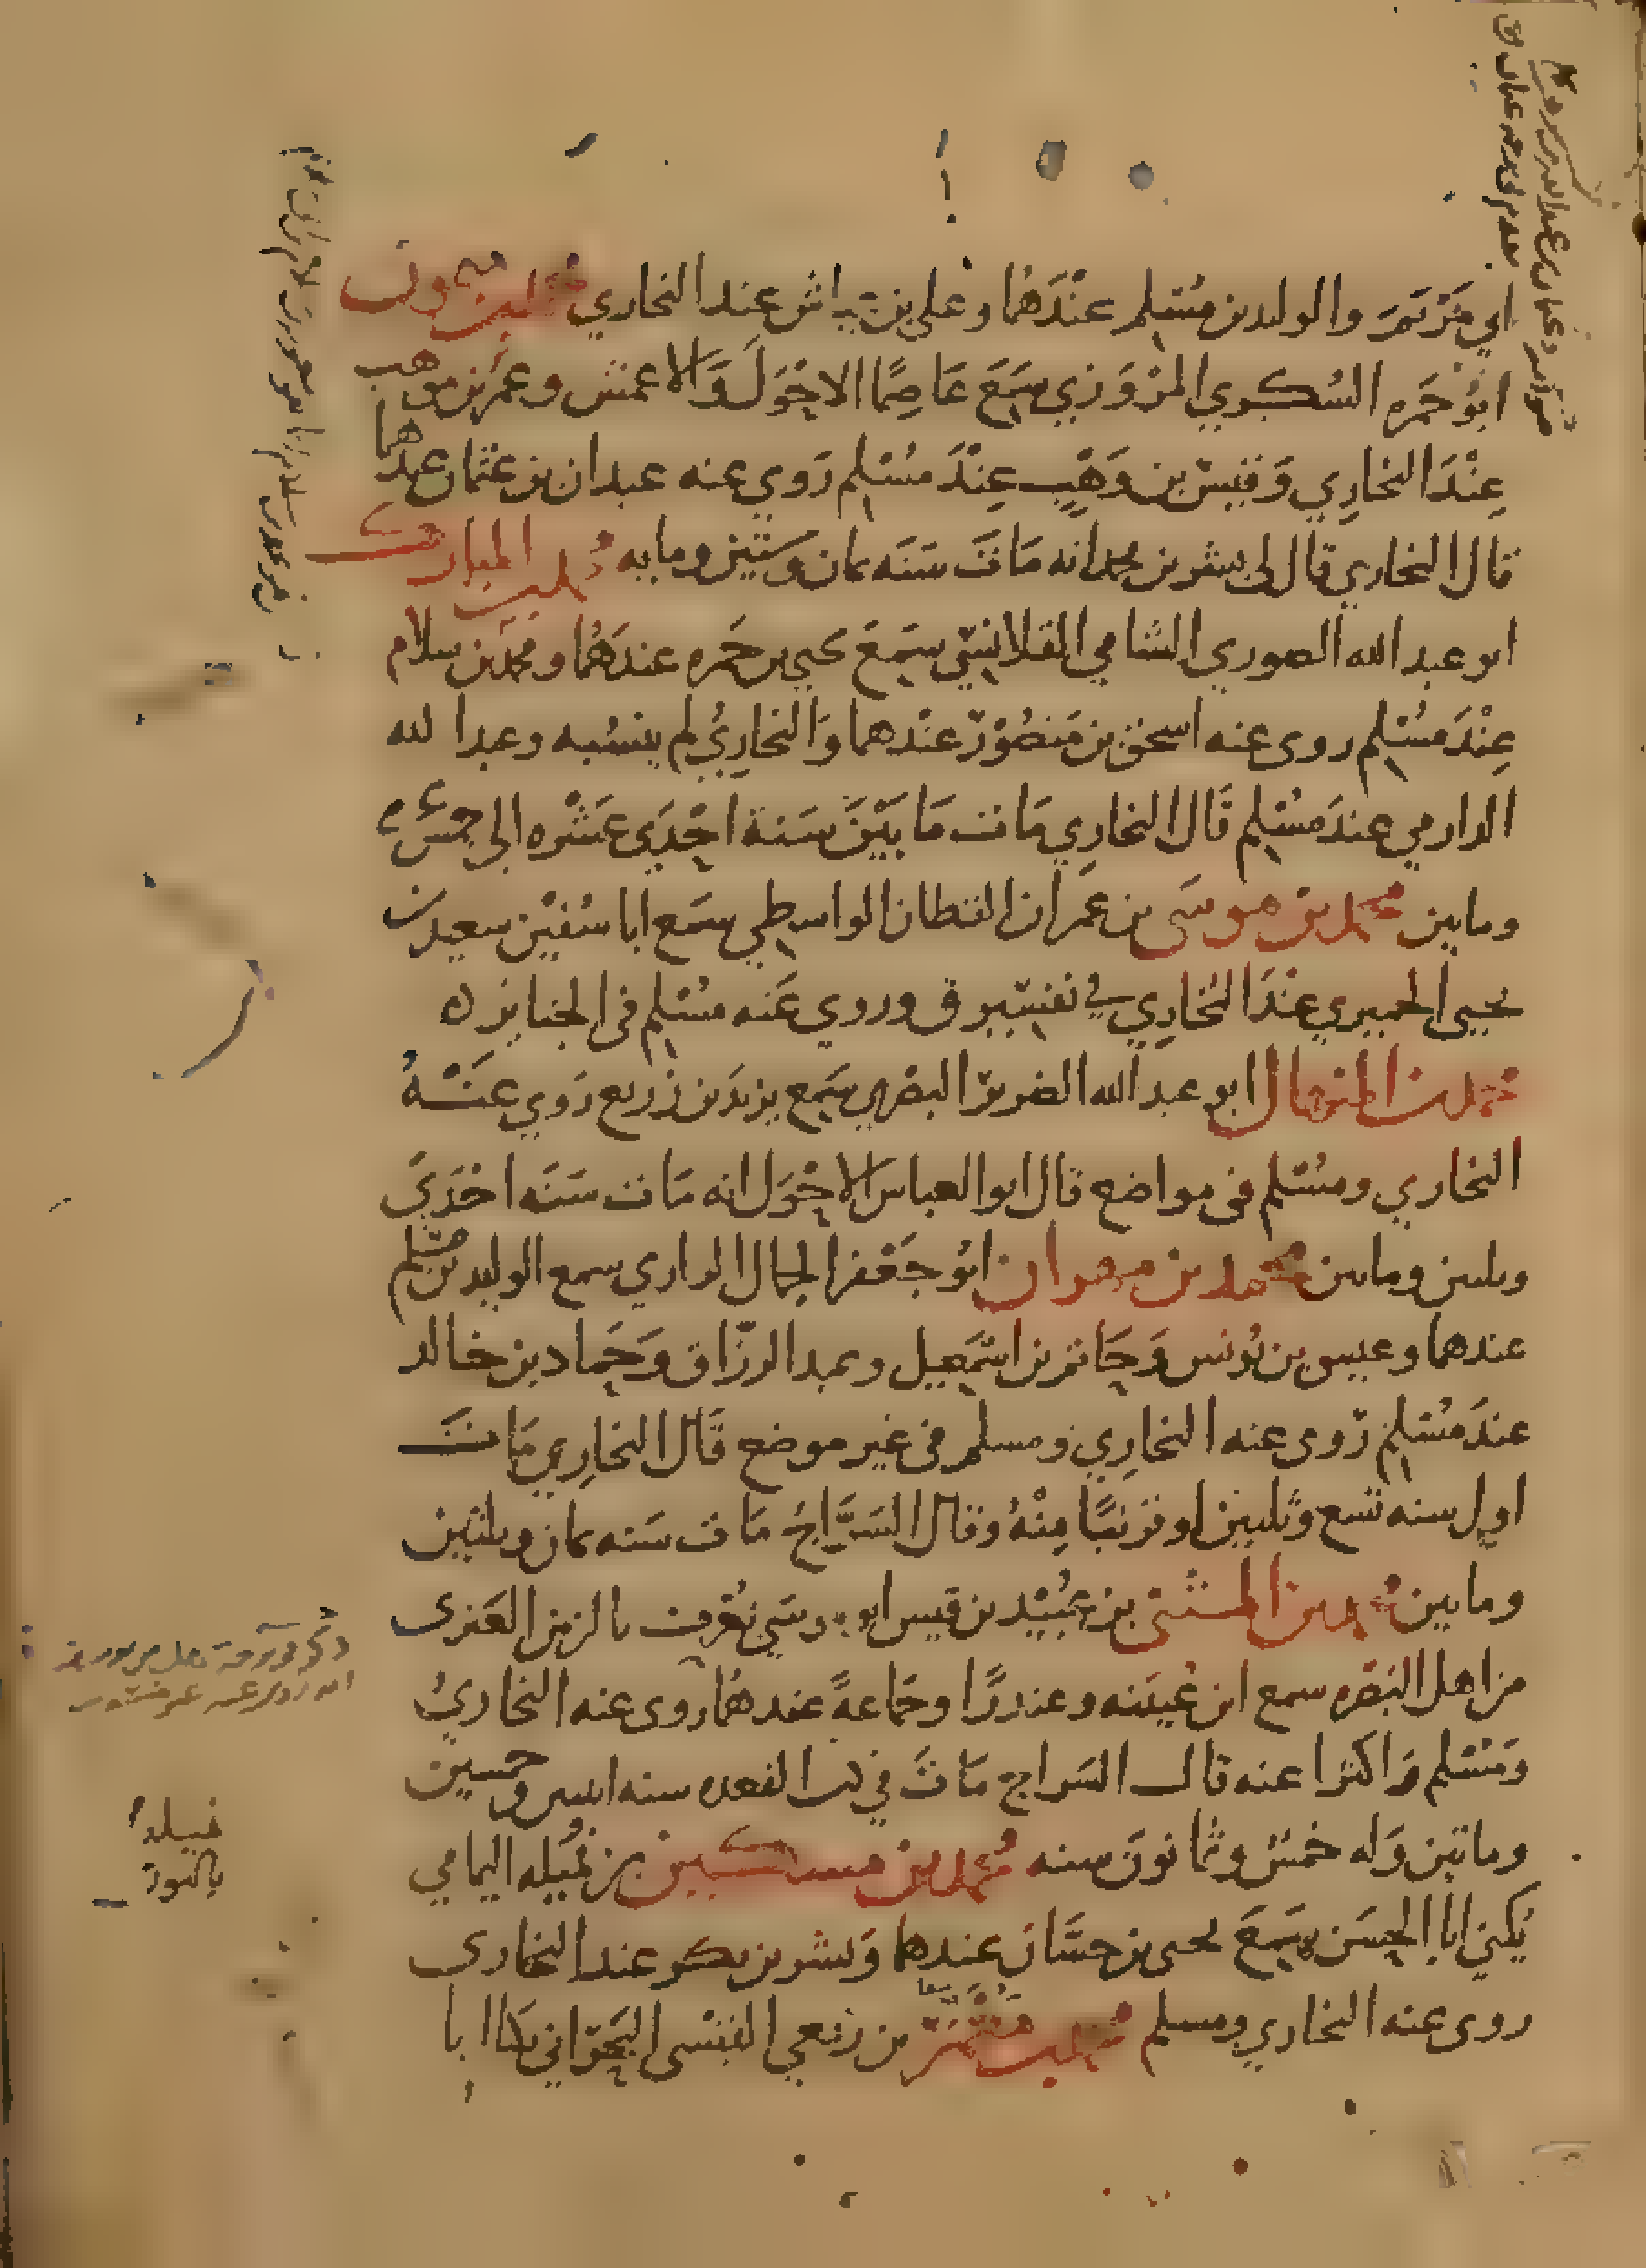 ابي مريم والوليد بن مسلم عندهما وعلي بن عياش عند البخاري محمد بن ميمون
ابو حمزه السكري المروزي سمع عاصما الاحول والاعمش وعثمن بن موهب
عند البخاري وقيس بن وهب عند مسلم روي عنه عبدان بن عثمان عندهما
قال البخاري قال لي بشر بن محمد انه مات سنه ثمان وستين ومايه محمد بن المبارك
ابو عبد الله الصوري الشامي القلانسي سمع يحيي بن حمزه عندهما ومحمد بن سلام
عند مسلم روى عنه اسحق بن منصور عندهما والبخاري لم ينسبه وعبد الله
الدارمي عند مسلم قال البخاري مات ما بين سنة احدى عشره الى خمس عشره
ومايتين محمد بن موسى بن عمران القطان الواسطي سمع ابا سفين سعيد بن
يحيى الحميري عند البخاري في تفسير ق وروي عنه مسلم في الجنايز ه
محمد بن المنهال ابو عبد الله الضرير البصري سمع يزيد بن زريع روي عنه
البخاري ومسلم في مواضع قال ابو العباس الاحول انه مات سنه احدى
وثلثين ومايتين محمد بن مهران ابو جعفر الجمال الرازي سمع الوليد بن مسلم
عندهما وعيسى بن يونس وحاتم بن اسمعيل وعبد الرزاق وحماد بن خالد
عند مسلم روى عنه البخاري ومسلم في غير موضع قال البخاري مات
اول سنه تسع وثلثين او قريبا منه وقال السراج مات سنه ثمان وثلثين
ومايتين محمد بن المثنى بن عبيد بن قيس ابو موسي يعرف بالزمن العنزى
من اهل البصره سمع ابن عيينه وغندرا وجماعة عندهما روى عنه البخاري
ومسلم واكثرا عنه قال السراج مات في ذي القعده سنه اثنين وخمسين
ومايتين وله خمس وثمانون سنه محمد بن مسكين بن نميله اليمامي
يكنى ابا الحسن سمع يحيى بن حسان عندهما وبشر بن بكر عند البخارى
روى عنه البخاري ومسلم محمد بن معمر بن ربعي القيسى البحراني يكنا ابا
معا
نميله
بالنون